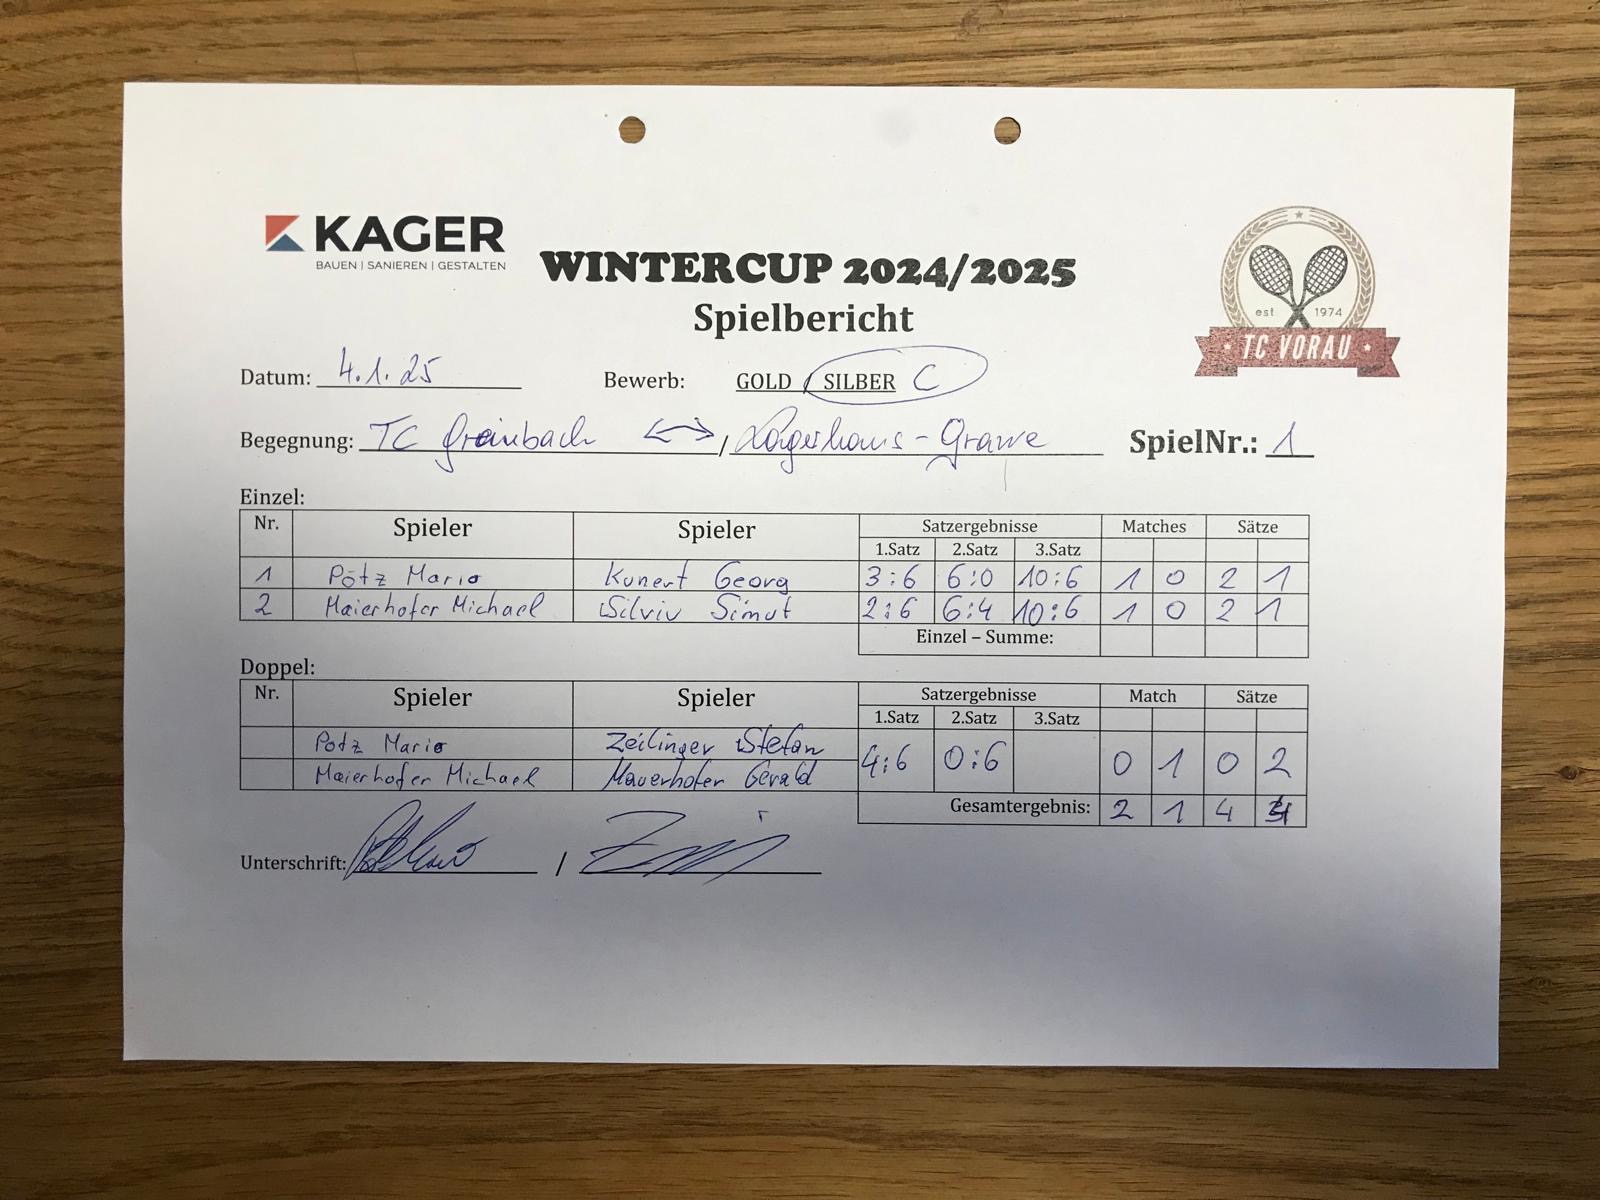 KAGER
BAUEN | SANIEREN | GESTALTEN
WINTERCUP 2024/2025
Spielbericht
est 1974
TC VORAU
Datum: 4.1.25 Bewerb: GOLD / SILBER C
Begegnung: TC Greinbach <-> / Lagerhaus - Grawe SpielNr.: 1
Einzel:
Nr. Spieler Spieler Satzergebnisse Matches Sätze
1.Satz 2.Satz 3.Satz
1 Pötz Mario Kunert Georg 3:6 6:0 10:6 1 0 2 1
2 Maierhofer Michael Silviu Simut 2:6 6:4 10:6 1 0 2 1
Einzel – Summe:
Doppel:
Nr. Spieler Spieler Satzergebnisse Match Sätze
1.Satz 2.Satz 3.Satz
Potz Mario Zeilinger Stefan 4:6 0:6 0 1 0 2
Maierhofer Michael Mauerhofer Gerald
Gesamtergebnis: 2 1 4
Unterschrift: /